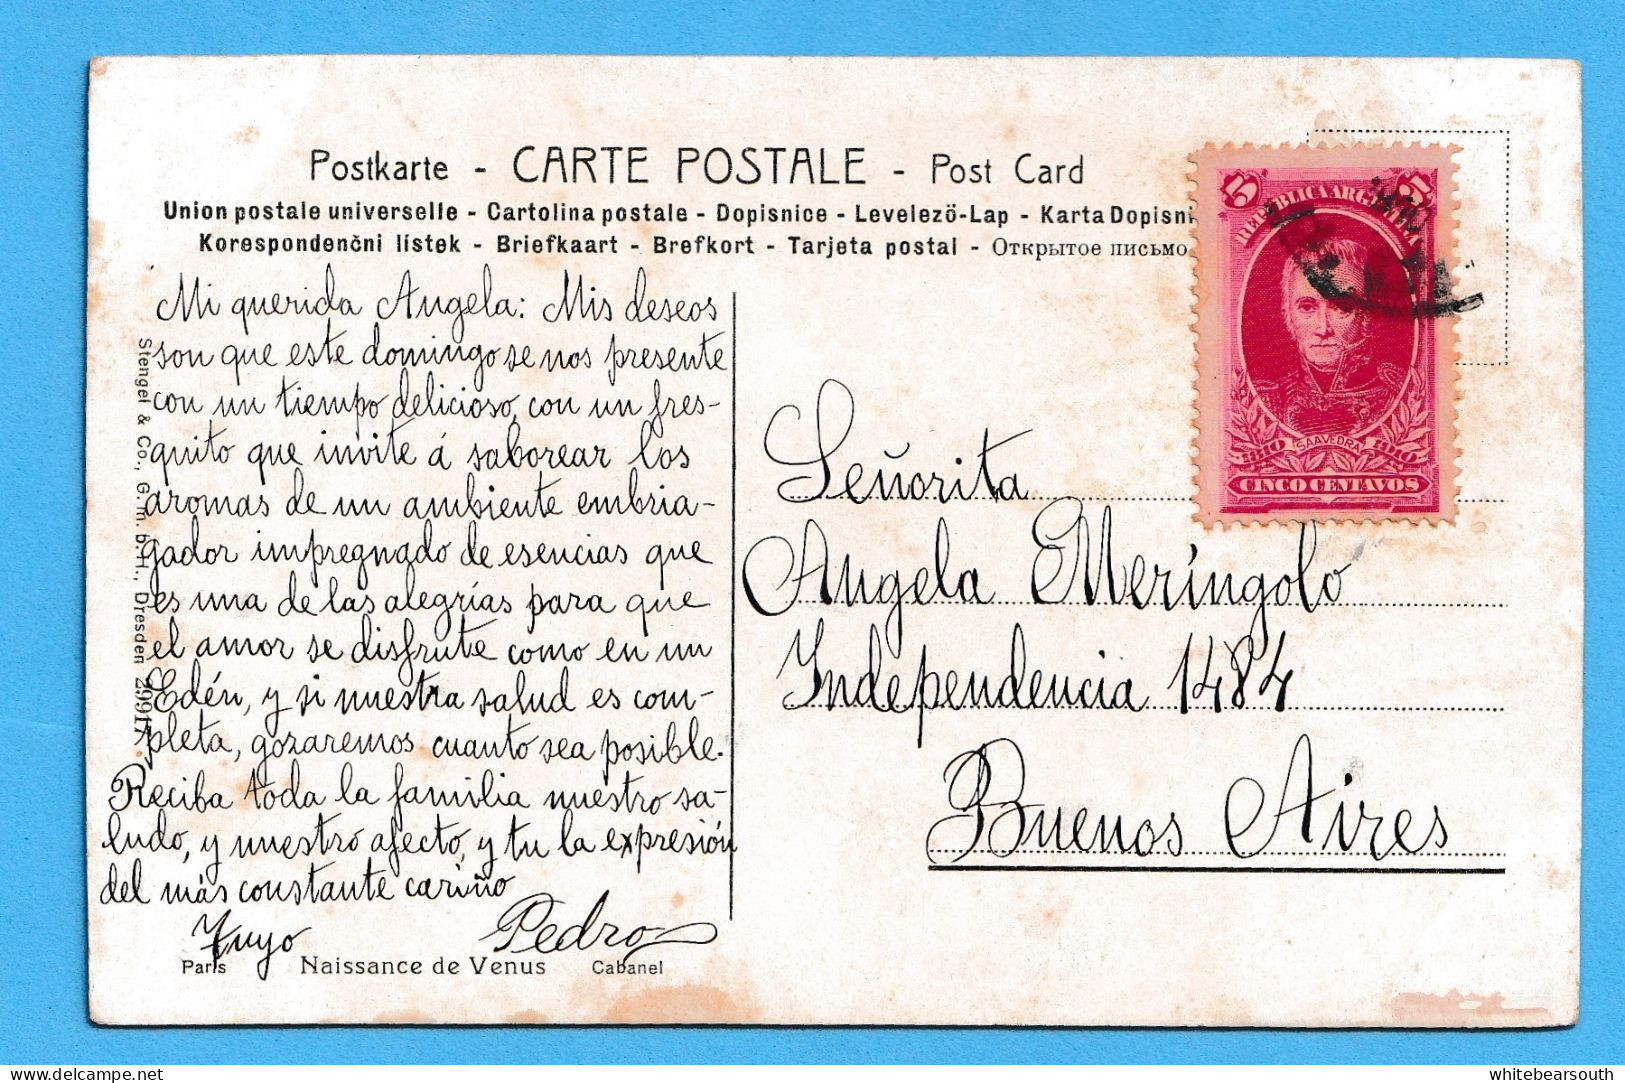 Postkarte - CARTE POSTALE - Post Card
Union postale universelle - Cartolina postale - Dopisnice - Levelezö-Lap - Karta Dopisni
Korespondenční lístek - Briefkaart - Brefkort - Tarjeta postal - Открытое письмо
Mi querida Angela: Mis deseos
son que este domingo se nos presente
con un tiempo delicioso, con un fres-
quito que invite á saborear los
aromas de un ambiente embria-
gador impregnado de esencias que
es una de las alegrías para que
el amor se disfrute como en un
Edén, y si nuestra salud es com-
pleta, gozaremos cuanto sea posible.
Reciba toda la familia nuestro sa-
ludo, y nuestro afecto, y tu la expresión
del más constante cariño
Tuyo Pedro
Paris Naissance de Venus Cabanel
Stengel & Co., G. m. b. H., Dresden 29917
5 5
REPUBLICA ARGENTINA
SAAVEDRA
1810 1910
CINCO CENTAVOS
Señorita
Angela Meríngolo
Independencia 1484
Buenos Aires
whitebearsouth